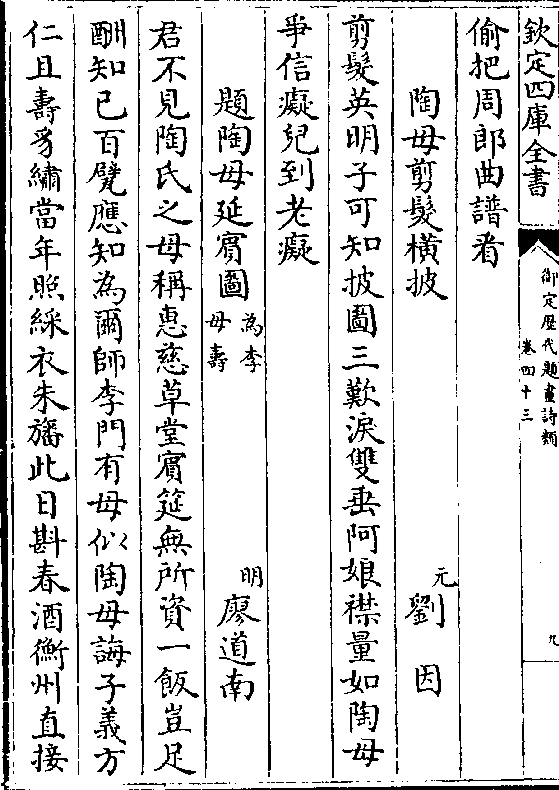 欽定四庫全書
御定歷代題畫詩類
卷四十三
九
偷把周郎曲譜看
陶母剪髮橫披
元
劉因
剪髮英明子可知披圖三歎淚雙垂阿娘襟量如陶母
爭信癡兒到老癡
題陶母延賓圖
為李
母壽
明
廖道南
君不見陶氏之母稱惠慈草堂賓筵無所資一飯豈足
酬知已百甓應知為爾師李門有母似陶母誨子義方
仁且壽豸繡當年照綵衣朱旛此日斟春酒衡州直接